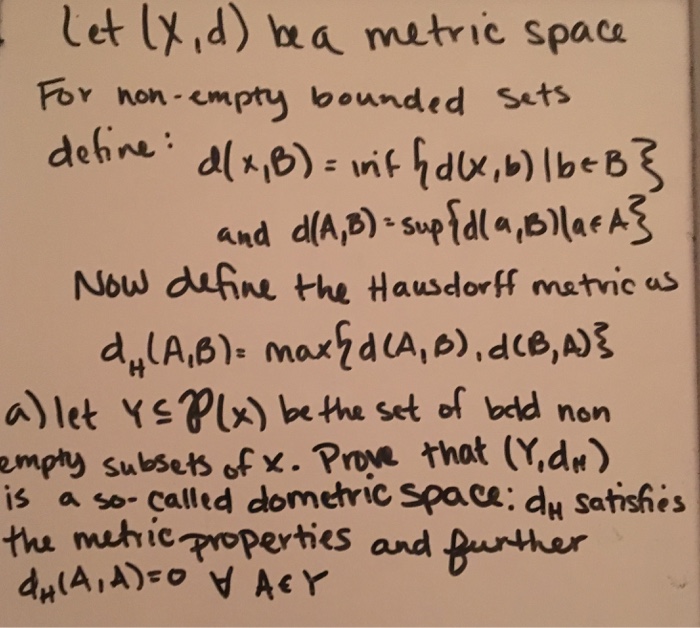 Let (X,d) be a metric space
For non-empty bounded sets
define: d(x,B) = inf {d(x,b) | b ∈ B}
and d(A,B) = sup{d(a,B)|a ∈ A}
Now define the Hausdorff metric as
d_H(A,B) = max{d(A,B), d(B,A)}
a) let Y ⊆ P(x) be the set of bdd non
empty subsets of x. Prove that (Y,d_H)
is a so-called dometric space: d_H satisfies
the metric properties and further
d_H(A,A)=0 ∀ A ∈ Y